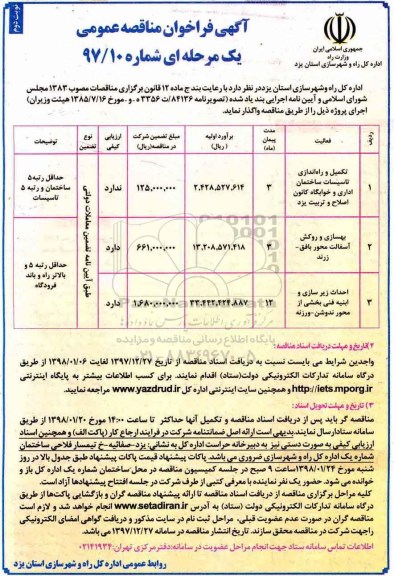 نوبت دوم
آگهی فراخوان مناقصه عمومی
یک مرحله ای شماره ۹۷/۱۰
جمهوری اسلامی ایران
وزارت راه
اداره کل راه و شهرسازی استان یزد
اداره کل راه وشهرسازی استان یزددر نظر دارد با رعایت بند ج ماده ۱۲ قانون برگزاری مناقصات مصوب ۱۳۸۳ مجلس
شورای اسلامی و آیین نامه اجرایی بند یاد شده (تصویرنامه ۸۴۱۳۶/ت ۳۳۵۶ ه .و -مورخ ۱۳۸۵/۷/۱۶ هیئت وزیران)
اجرای پروژه ذیل را از طریق مناقصه واگذار نماید.
ردیف
فعالیت
مدت پیمان (ماه)
برآورد اولیه (ریال)
مبلغ تضمین شرکت در مناقصه(ریال)
ارزیابی کیفی
نوع تضمین
توضیحات
۱
تکمیل و راه‌اندازی تاسیسات ساختمان اداری و خوابگاه کانون اصلاح و تربیت یزد
۳
۲,۴۲۸,۵۲۷,۶۱۴
۱۲۵,۰۰۰,۰۰۰
ندارد
حداقل رتبه۵ ساختمان و رتبه ۵ تاسیسات
۲
بهسازی و روکش آسفالت محور بافق- زرند
۳
۱۳,۲۰۸,۵۷۱,۴۱۸
۶۶۱,۰۰۰,۰۰۰
دارد
حداقل رتبه ۵ و بالاتر راه و باند فرودگاه
۳
احداث زیر سازی و ابنیه فنی بخشی از محور ندوشن -ورزنه
۱۲
۱,۶۸۰,۰۰۰,۰۰۰
دارد
طبق آیین نامه تضمین معاملات دولتی
۲)تاریخ و مهلت دریافت اسناد مناقصه:
واجدین شرایط می بایست نسبت به دریافت اسناد مناقصه از تاریخ ۱۳۹۷/۱۲/۲۷ لغایت ۱۳۹۸/۰۱/۰۶ از طریق
درگاه سامانه تدارکات الکترونیکی دولت(ستاد) اقدام نمایند. برای کسب اطلاعات بیشتر به پایگاه اینترنتی
http://iets.mporg.ir و همچنین سایت اینترنتی اداره کل www.yazdrud.ir مراجعه نمایید.
۳) تاریخ و مهلت تحویل اسناد:
مناقصه گر باید پس از دریافت اسناد مناقصه و تکمیل آنها حداکثر تا ساعت ۱۴:۰۰ مورخ ۱۳۹۸/۰۱/۲۰ از طریق
سامانه ستادارسال نمایند.بدیهی است ارائه اصل ضمانتنامه شرکت در فرآیند ارجاع کار (پاکت الف) و همچنین اسناد
ارزیابی کیفی به صورت دستی نیز به دبیرخانه حراست اداره کل به نشانی: یزد-صفائیه-خ تیمسار فلاحی ساختمان
شماره یک اداره کل راه و شهرسازی ضروری می باشد. پاکات پیشنهاد قیمت پاکات پیشنهاد طبق جدول بالا در روز
شنبه مورخ ۱۳۹۸/۰۱/۲۴ساعت ۹ صبح در جلسه کمیسیون مناقصه در محل ساختمان شماره یک اداره کل باز و
خوانده می شود. حضور یک نفر نماینده با معرفی کتبی از طرف شرکت در جلسه افتتاح پیشنهادها آزاد است.
کلیه مراحل برگزاری مناقصه از دریافت اسناد مناقصه تا ارائه پیشنهاد مناقصه گران و بازگشایی پاکت‌ها از طریق
درگاه سامانه تدارکات الکترونیکی دولت (ستاد) به آدرس www.setadiran.ir انجام خواهد شد و لازم است
مناقصه گران در صورت عدم عضویت قبلی، مراحل ثبت نام در سایت مذکور و دریافت گواهی امضای الکترونیکی
راجهت شرکت در مناقصه محقق سازند. تاریخ انتشار مناقصه در سامانه ۱۳۹۷/۱۲/۲۷ می باشد.
اطلاعات تماس سامانه ستاد جهت انجام مراحل عضویت در سامانه:دفترمرکزی تهران:۰۲۱۴۱۹۳۴
روابط عمومی اداره کل راه و شهرسازی استان یزد